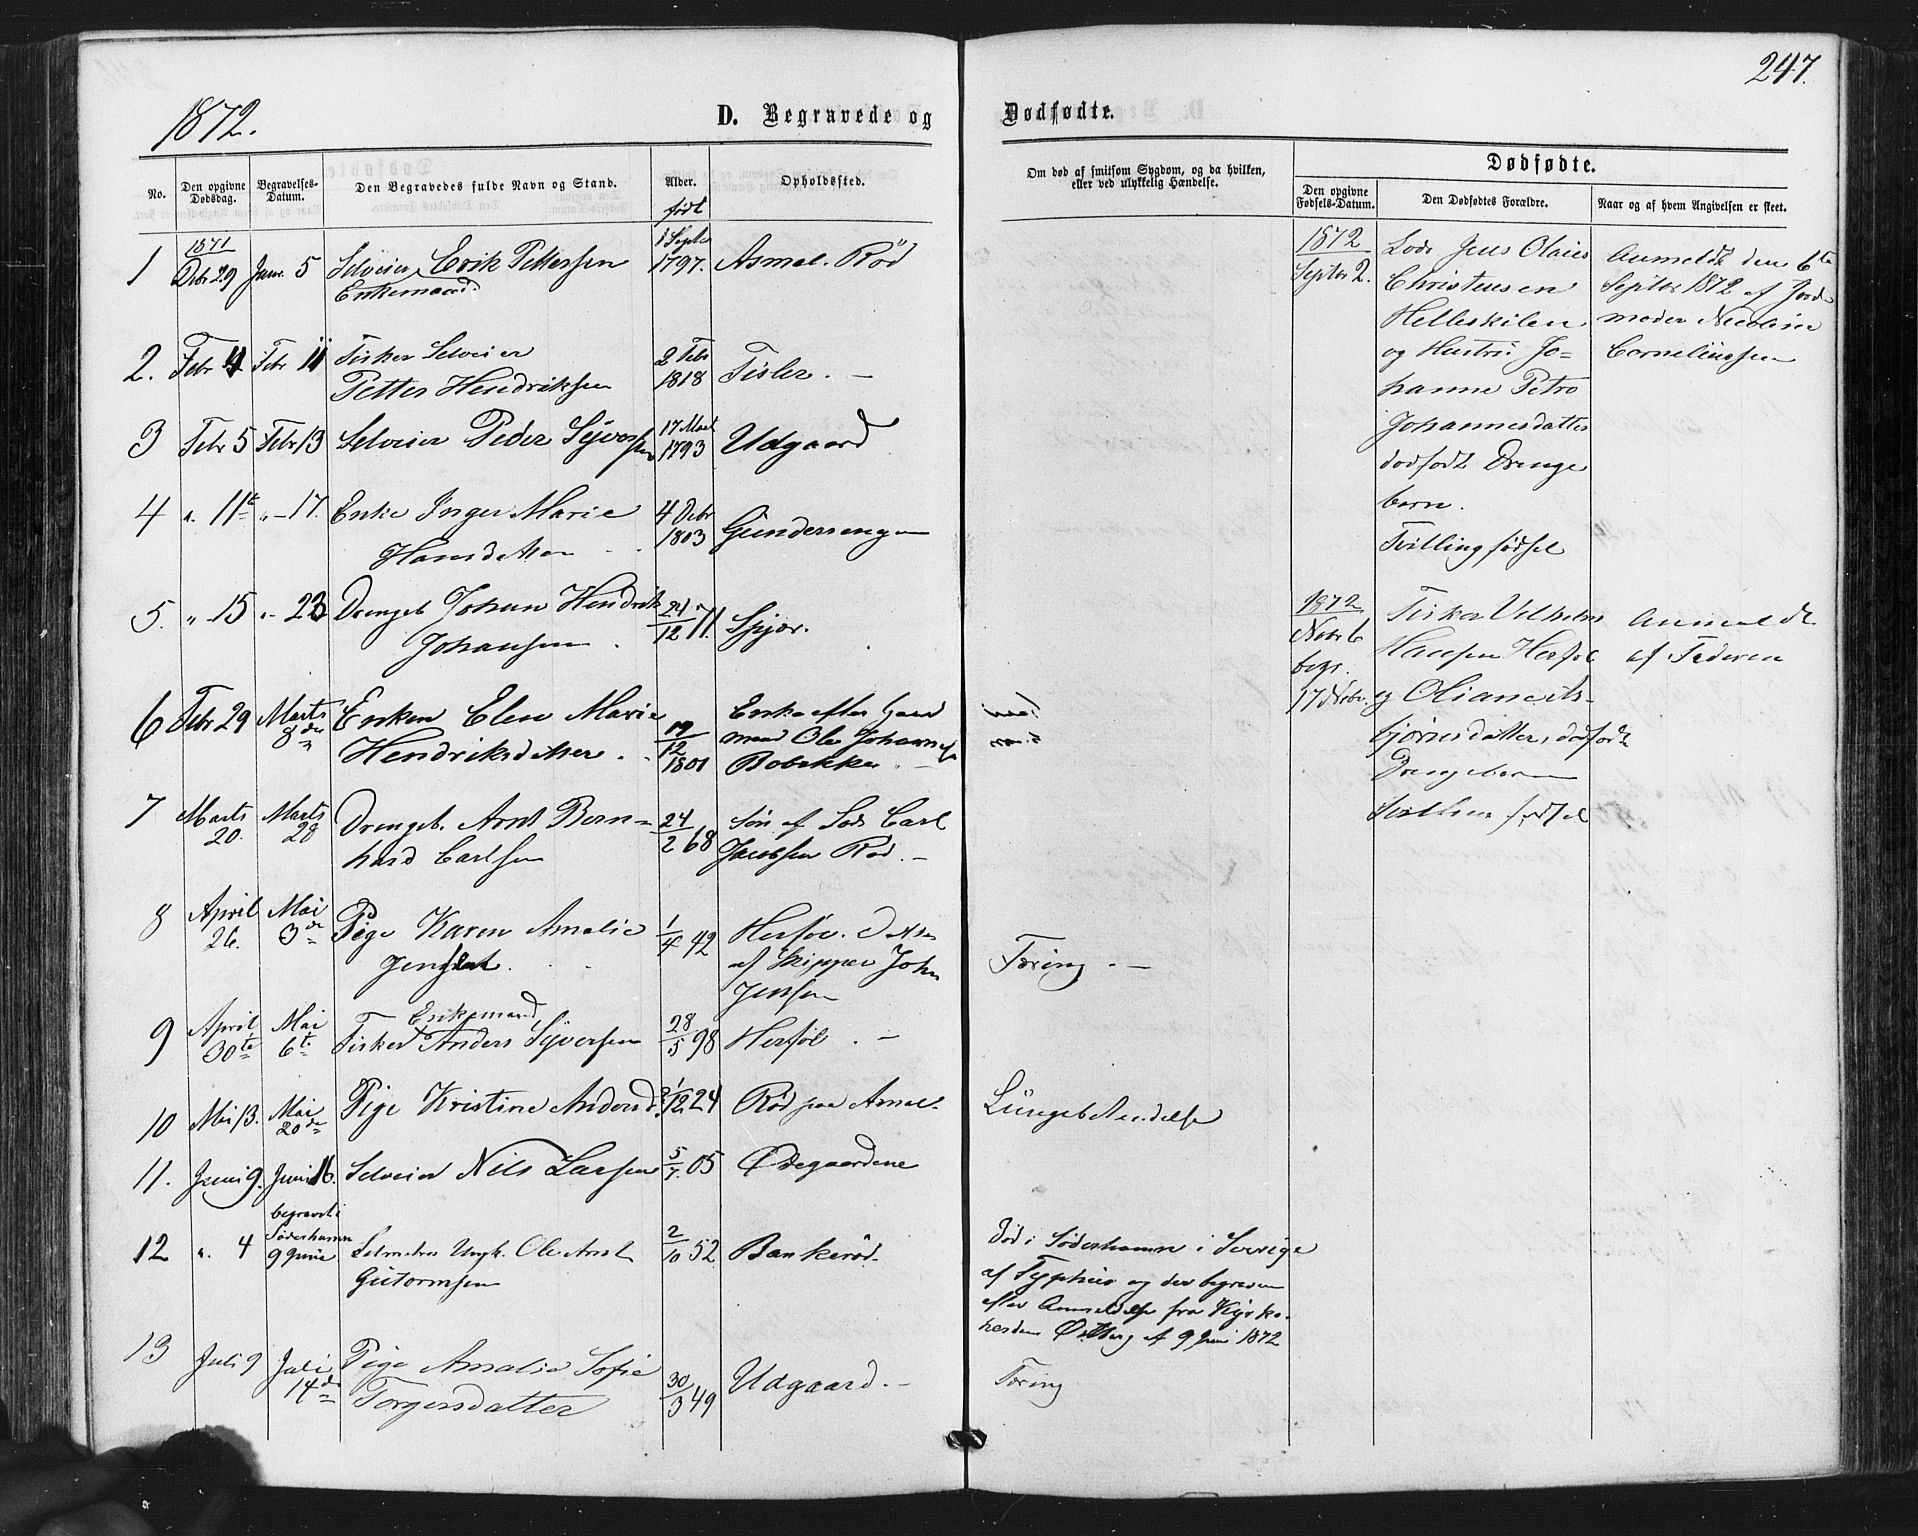 247.
1872.
D. Begravede og Dødfødte.
No.
Den opgivne Dødsdag.
Begravelses-Datum.
Den Begravedes fulde Navn og Stand.
Alder.
født
Opholdssted.
Om død af smitsom Sygdom, og da hvilken, eller ved ulykkelig Hændelse.
Dødfødte.
Den opgivne Fødsels-Datum.
Den Dødfødtes Forældre.
Naar og af hvem Angivelsen er skeet.
1 1871 Dcbr 29 Janr. 5 Selveier Erik Pettersen 1 Septr 1797. Asmal. Röd
Enkemand.
2. Febr 4 Febr 11 Fisker Selveier 2 Febr 1818 Tisler. –
Petter Hendriksen
3 Febr 5 Febr 13 Selveier Peder Syversen 17 Mart 1793 Udgaard
4 " 11te "–17. Enke Inger Marie 4 Dcbr 1803 Gunderengen
Hansdatter
5. " 15 "– 23 Drengeb Johan Hendrik 21/12 71. Spjær.
Johansen
6 Febr 29 Marts 8de Enken Elen Marie 19/12 1801 Enke efter Huus
Hendriksdatter mand Ole Johannes
Bobekken –
7 Marts 20. Marts 28 Drengeb. Arnt Bern- 24/2 68 Søn af Lods Carl
hard Carlsen Jacobsen Röd. –
8 April 26. Mai 3de Pige Karen Amalie 1/4 42 Herföl. Datter
Jensdat. af Skipper John Tæring –
Jensen
9 April 30te Mai 6te Enkemand,
Fisker Anders Syversen 28/5 98 Herföl. –
10 Mai 13. Mai 20de Pige Kristine Andersd. 1/12 24 Röd paa Asmal. Lungebetændelse
11. Juni 9. Juni 16. Selveier Nils Larsen 5/7. 05 Ødegaardene
12 " 4 begravet i Söderhamn 9 Junie Sømands Ungk. Ole Arnt 2/10 52 Bankeröd.
Gutormsen
Död i Söderhamn i Sverige
af Typhus og der begraven
efter Anmeldelse fra Kyrko-
herden Østberg af 9 Juni 1872
13 Juli 9 Juli 14de Pige Amalie Sofie 30/3 49 Udgaard. – Tæring
Torgersdatter
1872 Septbr 2.
Lods Jens Olaies
Christensen
Helleskilen
og Hustru Jo-
hanne Petro
Johannesdatter
dødfødt Drenge
barn.
Tvillingfødsel
Anmeldt den 6te
Septbr 1872 af Jorde
moder Nicoline
Corneliussen
1872 Novbr 6
begr.
17 Novbr.
Fisker Vilhelm
Hansen Herföl
og Oliane Es-
bjørnsdatter, dødfødt
Drengebarn
Tvillingfødsel
Anmeldt
af Faderen